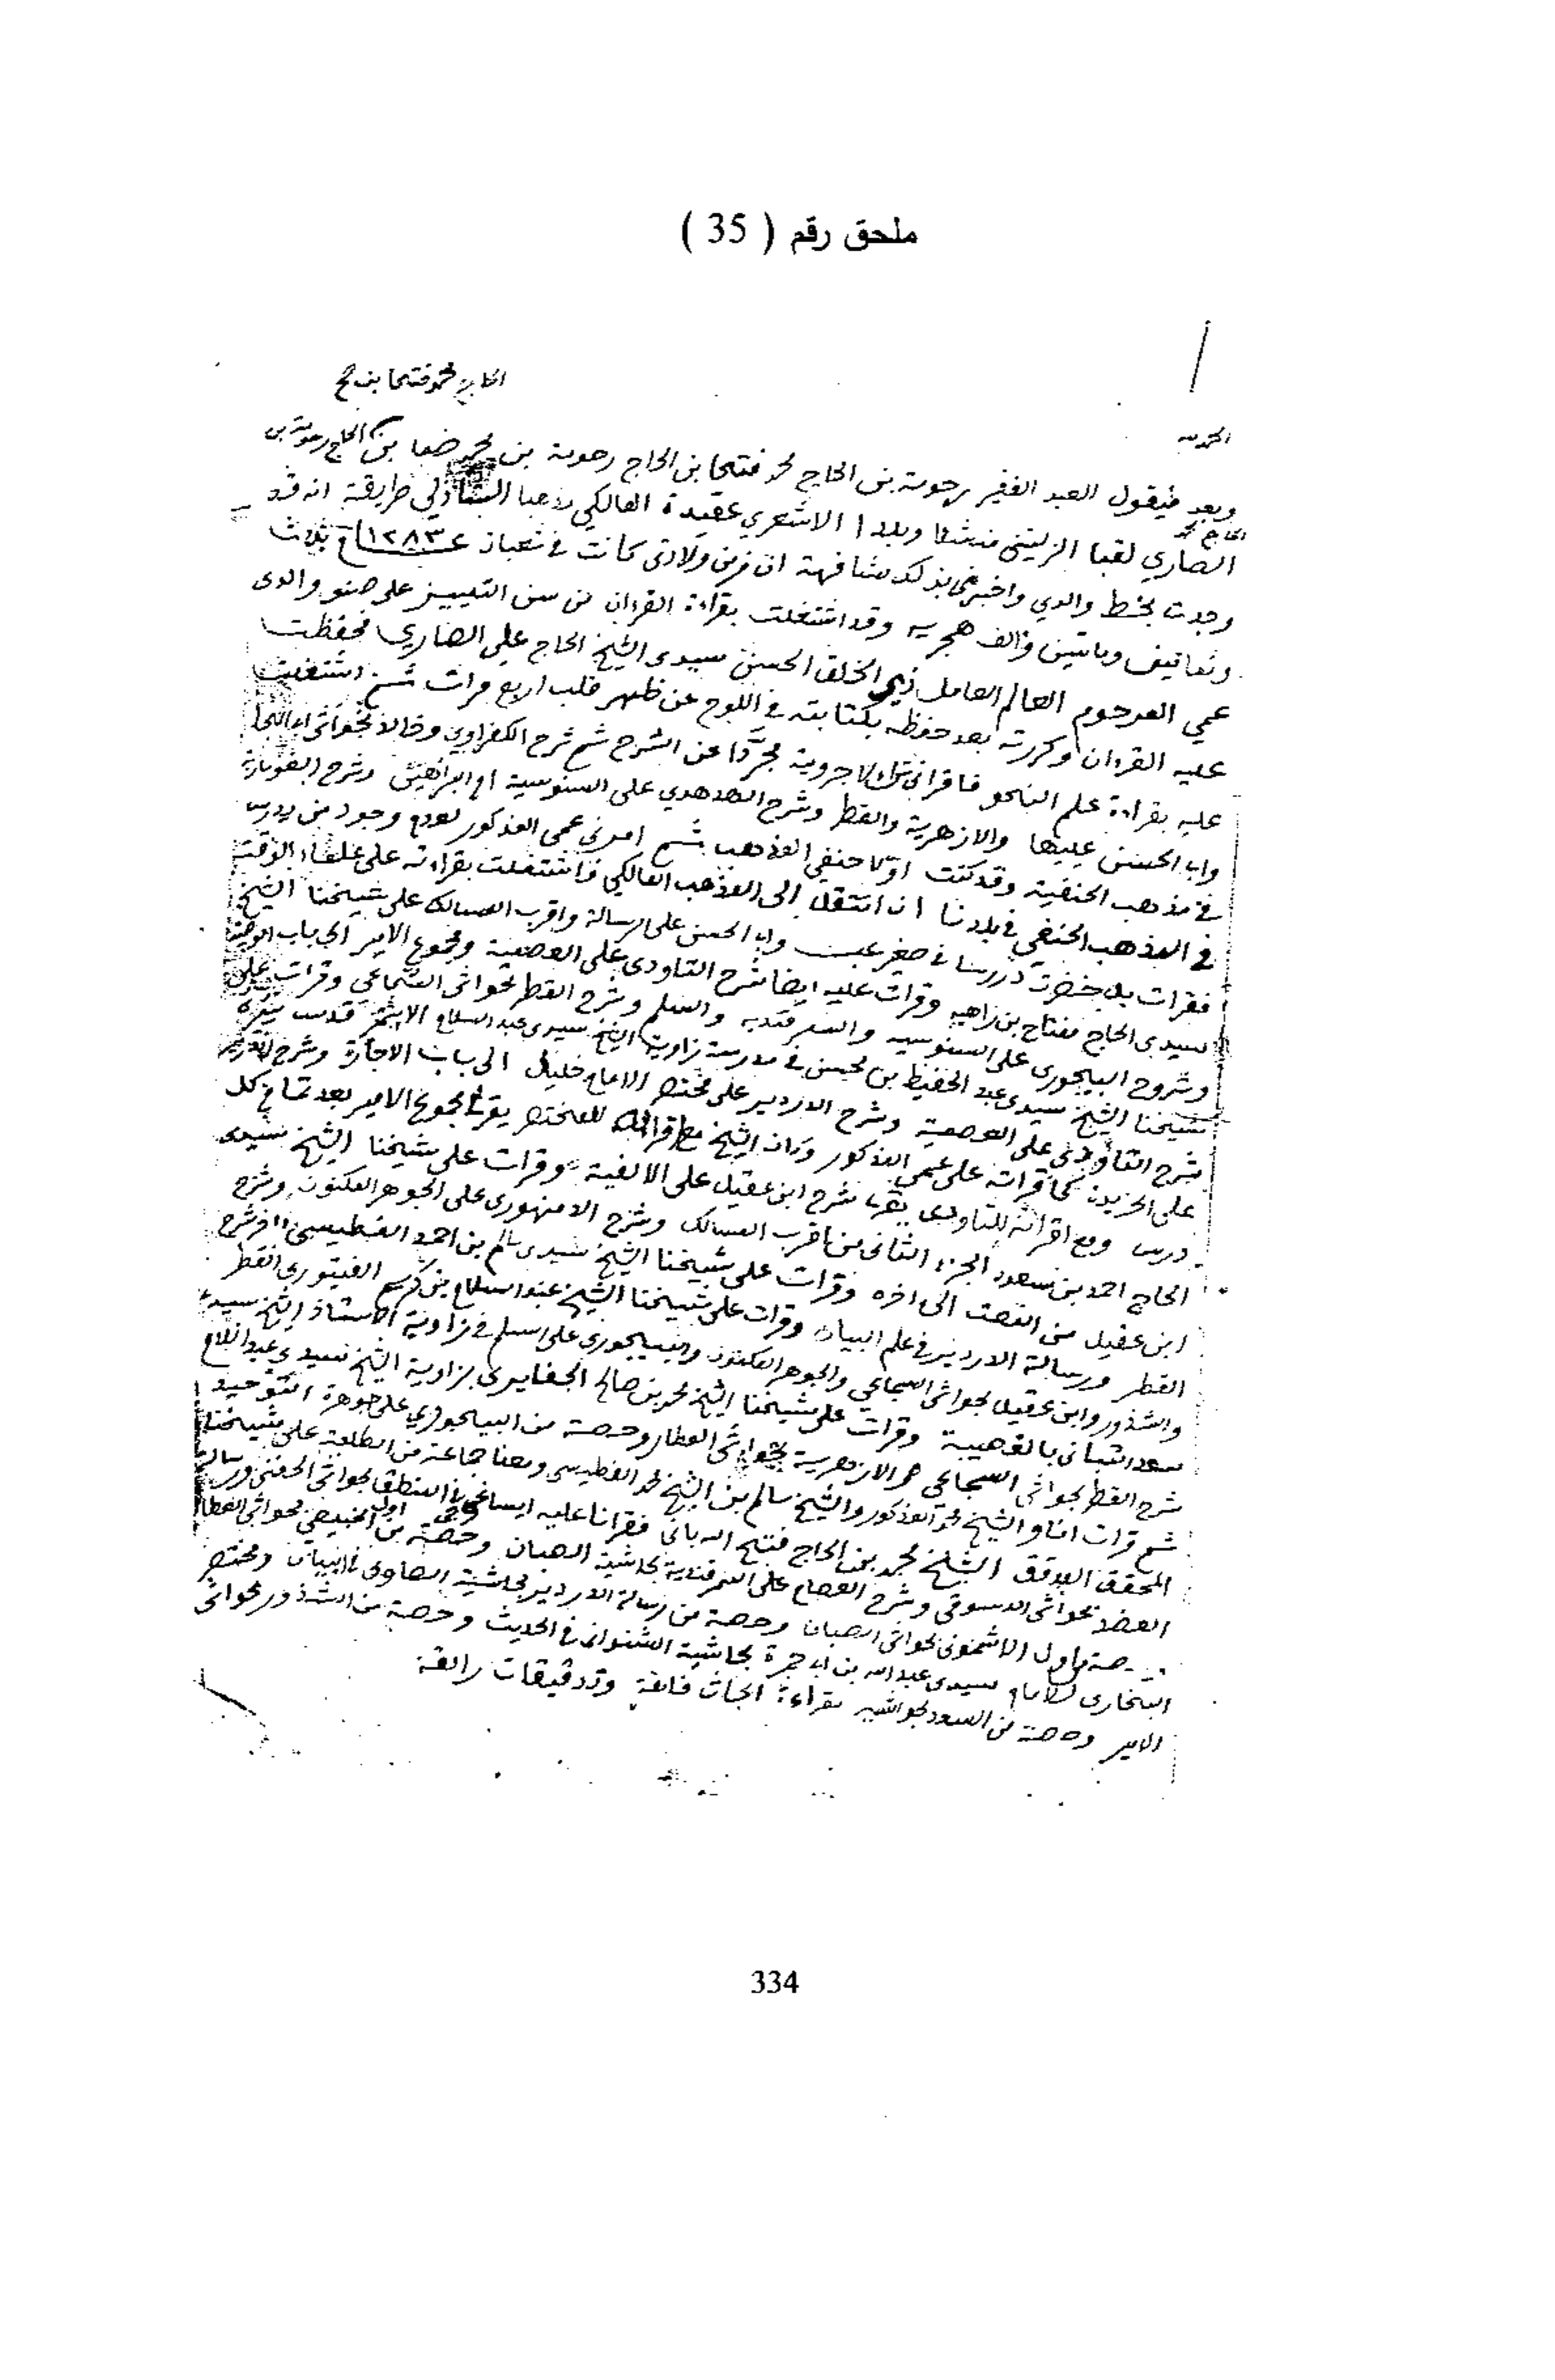 ملحق رقم ( 35 )
الحاج محمد فتحا بن
الحمد لله
وبعد فيقول العبد الفقير رحومة بن الحاج محمد فتحا بن الحاج رحومة بن محمد ضما بن الحاج رحومة بن
الحاج محمد
الصاري لقبا الزليتني منشئا وبلدا الاشعري عقيدة المالكي مذهبا الشاذلي طريقة انه قد
وجدت بخط والدي واخبرني بذلك مشافهة ان ولادتي كانت في شعبان ١٢٨٣ ثلاث
وثمانين ومائتين والف هجرية وقد اشتغلت بقراءة القرءان من سن التمييز على صنو والدي
عمي المرحوم العالم العامل ذي الخلق الحسن سيدي الشيخ الحاج علي الصاري فحفظت
عليه القرءان وكررته بعد حفظه بكتابته في اللوح عن ظهر قلب اربع مرات ثم اشتغلت
عليه بقراءة علم النحو فاقراني الاجرومية مجردا عن الشرح ثم شرح الكفراوي وخالد بحواشي ابي النجا
وابي الحسن عليها والازهرية والقطر وشرح الهدهدي على السنوسية ام البراهين وشرح
في مذهب الحنفية وقد كنت اولا حنفي المذهب ثم امرني عمي المذكور لعدم وجود من يدرس
في المذهب الحنفي في بلدنا ان انتقل الى المذهب المالكي فاشتغلت بقراءته على علماء الوقت
فقرات دروسا في صغير وابي الحسن على الرسالة واقرب المسالك على شيخنا الشيخ
سيدي الحاج مفتاح بن زاهية وقرات عليه ايضا شرح التاودي على العصمية ومجموع الامير الى باب
وشروح البيجوري على السنوسية والسمرقندية والسلم وشرح القطر بحواشي السجاعي وقرات على
شيخنا الشيخ سيدي عبد الحفيظ بن محسن في مدرسة زاوية الشيخ سيدي عبد السلام الاسمر قدس سره
شرح التاودي على العصمية وشرح الدردير على مختصر الامام خليل الى باب الاجارة وشرح
على الخريدة كما قراته على عمي المذكور وكان الشيخ مع اقرائه للمختصر يقرئ مجموع الامير بعد تمام كل
درس ومع اقرائه للتاودي يقرئ شرح ابن عقيل على الالفية وقرات على شيخنا الشيخ سيدي
الحاج احمد بن سعود الجزء الثاني من اقرب المسالك وشرح الدمنهوري على الجوهر المكنون وشرح
ابن عقيل من النعت الى اخره وقرات على شيخنا الشيخ سيدي سالم بن احمد الفطيسي شرح
القطر ورسالة الدردير في علم البيان وقرات على شيخنا الشيخ عبد السلام بن كريم الفيتوري القطر
والشذور وابن عقيل بحواشي السجاعي والجوهر المكنون والبيجوري على السلم في زاوية الاستاذ الشيخ سيدي
وقرات على شيخنا الشيخ محمد بن صالح الجغايري بزاوية الشيخ سيدي عبد السلام
شرح القطر بحواشي السجاعي والازهرية بحواشي العطار وحصة من البيجوري على جوهرة التوحيد
ثم قرات انا والشيخ محمد المذكور والشيخ سالم بن الشيخ محمد الفطيسي ومعنا جماعة من الطلبة على شيخنا
المحقق المدقق الشيخ محمد بن الحاج فتح الله فقرانا عليه ايساغوجي في المنطق بحواشي الحفني ورسالة
العضد بحواشي الدسوقي وشرح العصام على السمرقندية بحاشية الصبان وحصة من اول الخبيصي بحواشي العطار
حصة من اول الاشموني بحواشي الصبان وحصة من رسالة الدردير بحاشية الصاوي في البيان ومختصر
البخاري للامام سيدي عبد الله بن ابي جمرة بحاشية الشنواني في الحديث وحصة من الشذور بحواشي
الامير وحصة من السعد بحواشيه بقراءة ابحاث فائقة وتدقيقات رائقة
334